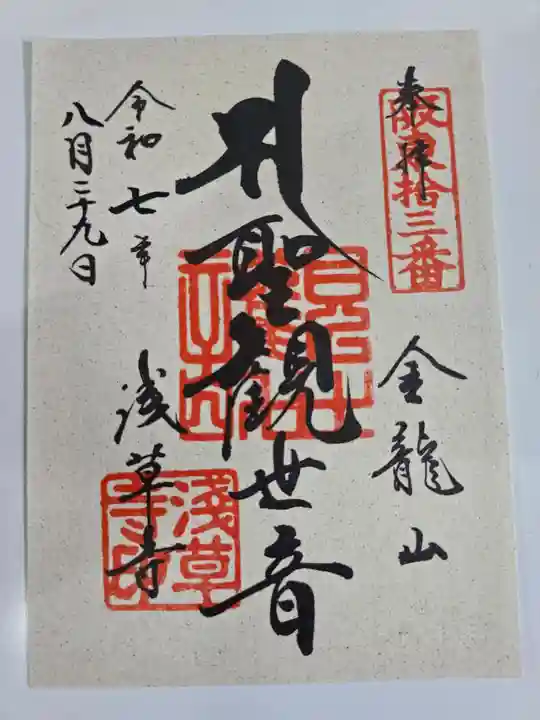 奉拝
阪東拾三番
金龍山
聖観世音
淺草寺印
浅草寺
令和七年
八月二十九日